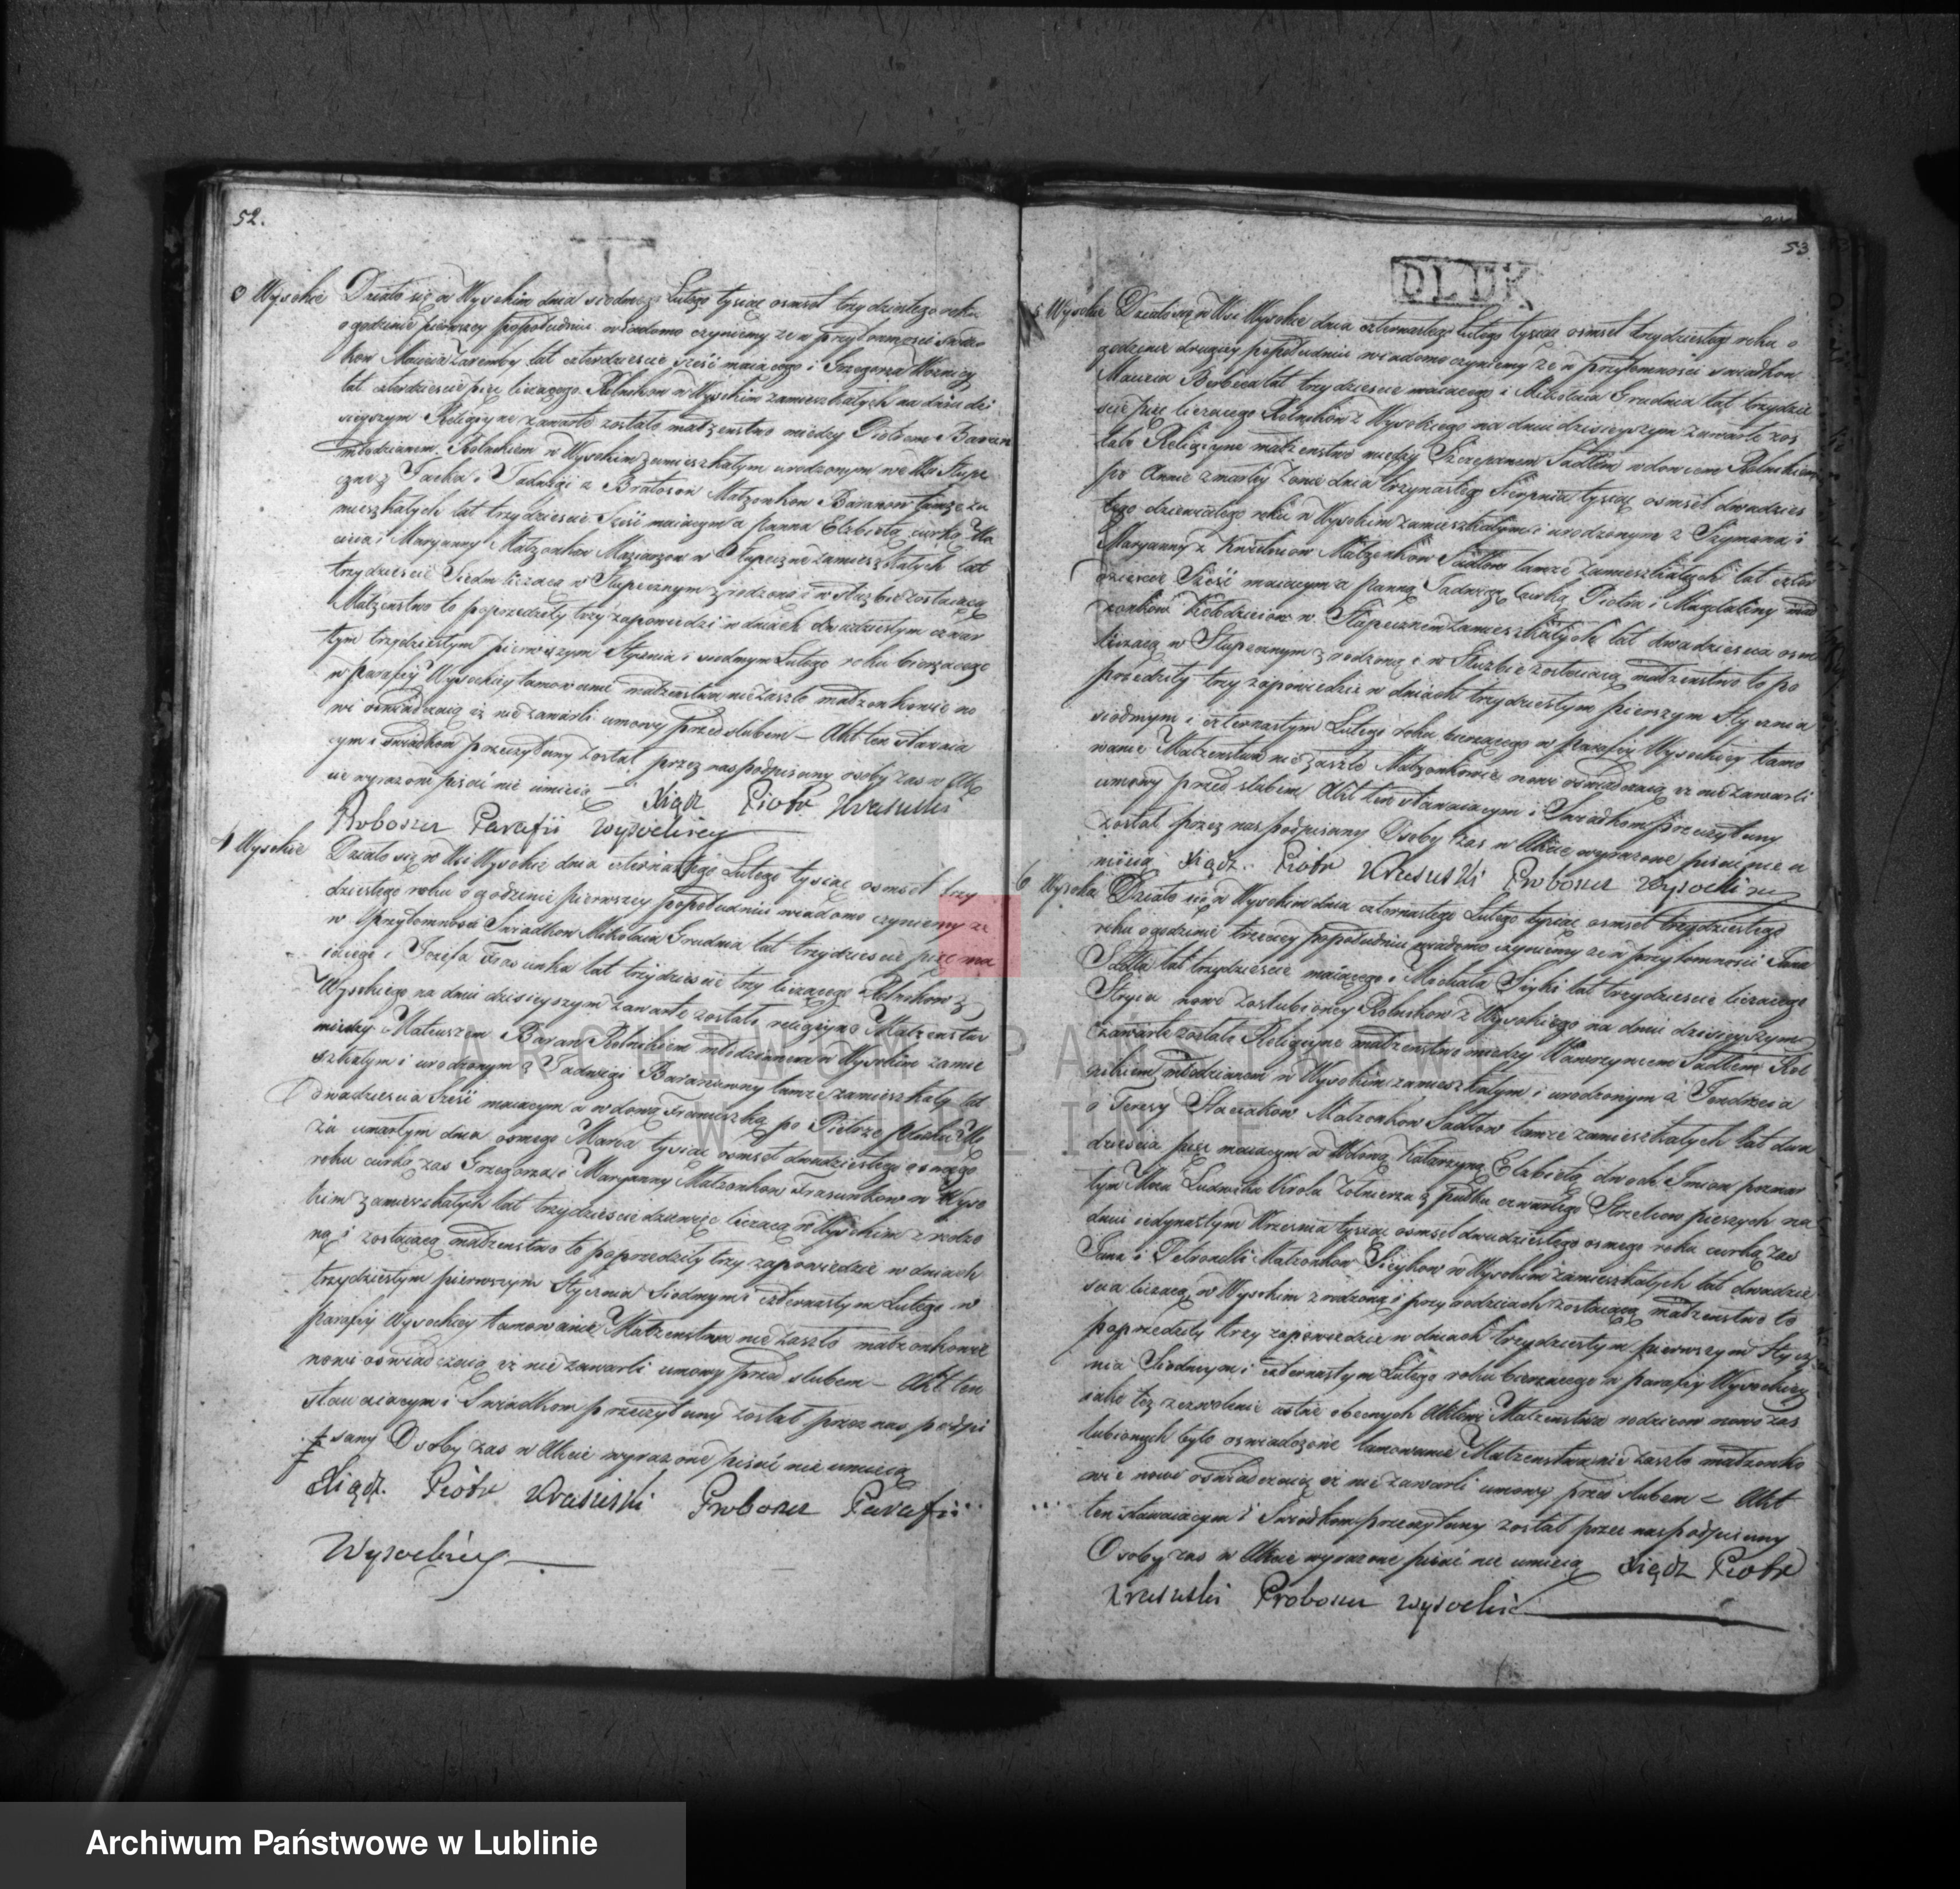 52.
3 Wysokie Działo się w Wysokim dnia siodmego Lutego tysiąc osmset trzydziestego roku
o godzinie pierwszey popołudniu wiadomo czyniemy ze w przytomnosci swiad
kow Macieia Zaremby lat czterdziescie szesć maiącego i Grzegorza Woznicy
lat czterdziescie pięc liczącego Rolnikow w Wysokim zamieszkałych na dniu dzi
sieyszym Religiyne zawarte zostało małzenstwo miedzy Piotrem Baran
młodzianem Rolnikiem w Wysokim zamieszkałym urodzonym we Wsi Słupe
czne z Jacka i Jadwigi z Bratosow Małzonkow Baranow tamze za
mieszkałych lat trzydziescie szesć maiącym a panną Elzbietą curką Ma
cieia i Maryanny Małzonkow Maziarzow w Słupeczne zamieszkałych lat
trzydziescie siedm liczącą w Słupecznym zrodzoną i w słuzbie zostaiącą
Małzenstwo to poprzedziły trzy zapowiedzi w dniach dwudziestym czwar
tym trzydziestym pierwszym Stycznia i siodmym Lutego roku biezącego
w parafiy Wysockiey tamowanie małzenstwa nie zaszło małzonkowie no
wi oswiadczaią iz nie zawarli umowy przedslubem – Akt ten stawaią
cym i swiadkom przeczytany został przez nas podpisany osoby zas w Ak
cie wyrazone pisać nie umieią – Xiądz Piotr Krasuski
Proboszcz Parafii Wysockiey
4 Wysokie Działo się w Wsi Wysokie dnia czternastego Lutego tysiąc osmset trzy
dziestego roku o godzinie pierwszey popołudniu wiadomo czyniemy ze
w przytomnosci Swiadkow Mikołaia Grudnia lat trzydziescie pięc ma
iącego i Jozefa Frasunka lat trzydziescie trzy liczącego Rolnikow z
Wysokiego na dniu dzisieyszym zawarte zostało religiyne Małzenstwo
miedzy Mateuszem Baran Rolnikiem młodzianem w Wysokim zamie
szkałym i urodzonym z Jadwigi Baranowny tamze zamieszkały lat
Dwadziescia szesć maiącym a wdową Franciszką po Pietrze
zu umarłym dnia osmego Marca tysiąc osmset dwudziestego osmego
roku curką zas Grzegorza i Maryanny Małzonkow Frasunkow w Wyso
kim zamieszkałych lat trzydziescie dziewięc liczącą w Wysokim zrodzo
ną i zostaiącą małzenstwo to poprzedziły trzy zapowiedzie w dniach
trzydziestym pierwszym Stycznia Siodmym i czternastym Lutego w
parafiy Wysockiey tamowanie Małzenstwa nie zaszło małzonkowie
nowi oswiadczaią iz nie zawarli umowy przed slubem – Akt ten
stawaiącym i Swiadkom przeczytany został przez nas podpi
sany Osoby zas w Akcie wyrazone pisać nie umieią
Xiądz. Piotr Krasuski Proboszcz Parafii
Wysockiey
53
DLUK
5 Wysokie Działo się w Wsi Wysokie dnia czternastego Lutego tysiąc osmset trzydziestego roku o
godzinie drugiey popołudniu wiadomo czyniemy ze w przytomnosci swiadkow
lat trzydziescie maiącego i Mikołaia Grudnia lat trzydzie
scie pięc liczącego Rolnikow z Wysokiego na dniu dzisieyszym zawarte zos
tało Religiyne małzenstwo między Szczepanem Sadłem wdowcem Rolnikiem
po Annie zmarłey Zonie dnia trzynastego Sierpnia tysiąc osmset dwudzies
tego dziewiątego roku w Wysokim zamieszkałym i urodzonym z Szymona i
Maryanny z Małzonkow Sadłow tamze zamieszkałych lat czter
dziescie Szesć maiącym a panną Jadwigą Curką Piotra i Magdaleny mał
zonkow Kołodzieiow w Słupecznem zamieszkałych lat dwadziescia osm
liczącą w Słupecznym zrodzoną i w Słuzbie zostaiącą małzenstwo to po
przedziły trzy zapowiedzie w dniach trzydziestym pierszym Stycznia
siodmym i czternastym Lutego roku biezącego w parafiy Wysockiey tamo
wanie Małzenstwa nie zaszło Małzonkowie nowi oswiadczaią iz nie zawarli
umowy przed slubem Akt ten stawaiącym i Swiadkom przeczytany
został przez nas podpisany Osoby zas w Akcie wyrazone pisać nie u
mieią Xiądz. Piotr Krasuski Proboszcz Wysockiey
6 Wysokie Działo się w Wysokim dnia czternastego Lutego tysiąc osmset trzydziestego
roku o godzinie trzeciey popołudniu wiadomo czyniemy ze w przytomnosci Jana
Sadła lat trzydziescie maiącego i Michała lat trzydziescie liczącego
Stryia nowo zaslubioney Rolnikow z Wysokiego na dniu dzisieyszym
zawarte zostało Religiyne małzenstwo miedzy Wawrzyncem Sadłem Rol
nikiem młodzianem w Wysokim zamieszkałym i urodzonym z Jendrzeia
i Teresy Małzonkow Sadłow tamze zamieszkałych lat dwa
dziescia pięc maiącym a Wdową Katarzyną Elzbietą dwoch Imion pozmar
tym Męzu Ludwiku Krolu Zołnierzu z pułku czwartego Strzelcow pieszych na
dniu iedynastym Wrzesnia tysiąc osmset dwudziestego osmego roku curką zas
Jana i Petronelli Małzonkow w Wysokim zamieszkałych lat dwadzie
scia liczącą w Wysokim zrodzoną i przy rodzicach zostaiącą małzenstwo to
poprzedziły trzy zapowiedzie w dniach trzydziestym pierwszym Stycz
nia Siodmym i czternastym Lutego roku biezącego w parafiy Wysockiey
iako tez zezwolenie ustne obecnych Aktowi Małzenstwa rodzicow nowo zas
lubionych było oswiadczone tamowanie Małzenstwa nie zaszło małzonko
wie nowi oswiadczaią iz nie zawarli umowy przed slubem – Akt
ten stawaiącym i Swiadkom przeczytany został przez nas podpisany
Osoby zas w Akcie wyrazone pisać nie umieią Xiądz Piotr
Krasuski Proboszcz Wysocki
ARCHIWUM PAŃSTWOWE
W LUBLINIE
Archiwum Państwowe w Lublinie